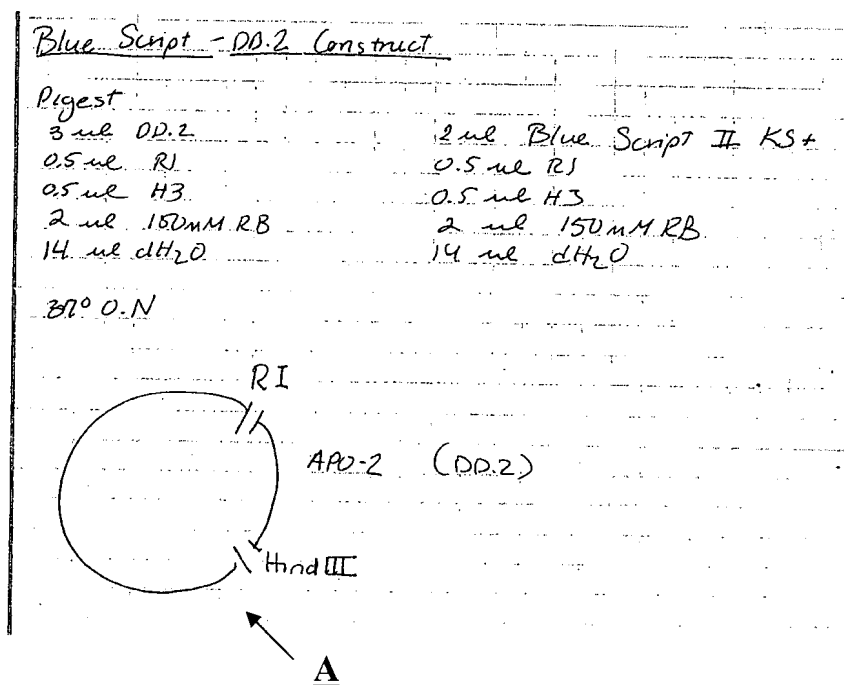 Blue Script - DD.2 Construct
Digest
3 ul DD.2
0.5 ul RI
0.5 ul H3
2 ul 150mM RB
14 ul dH2O
2 ul Blue Script II KS+
0.5 ul RI
0.5 ul H3
2 ul 150mM RB
14 ul dH2O
37° O.N
RI
APO-2 (DD.2)
Hind III
A